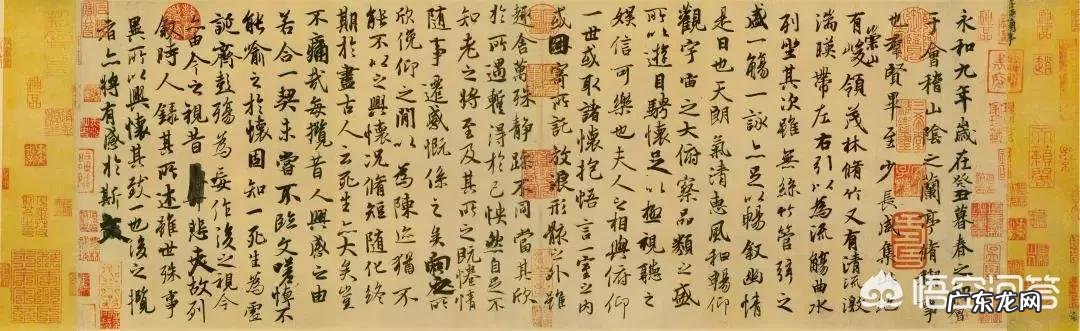 永和九年歲在癸丑暮春之初會
于會稽山陰之蘭亭脩稧事
也群賢畢至少長咸集此地
有崇山峻領茂林脩竹又有清流激
湍暎帶左右引以為流觴曲水
列坐其次雖無絲竹管弦之
盛一觴一詠亦足以暢敘幽情
是日也天朗氣清惠風和暢仰
觀宇宙之大俯察品類之盛
所以遊目騁懷足以極視聽之
娛信可樂也夫人之相與俯仰
一世或取諸懷抱悟言一室之內
或因寄所託放浪形骸之外雖
趣舍萬殊靜躁不同當其欣
於所遇暫得於己怏然自足不
知老之將至及其所之既惓情
隨事遷感慨係之矣向之所
欣俛仰之閒以為陳迹猶不
能不以之興懷況脩短隨化終
期於盡古人云死生亦大矣豈
不痛哉每攬昔人興感之由
若合一契未嘗不臨文嗟悼不
能喻之於懷固知一死生為虛
誕齊彭殤為妄作後之視今
亦由今之視昔悲夫故列
敘時人錄其所述雖世殊事
異所以興懷其致一也後之攬
者亦將有感於斯文
悟空问答
广东龙网